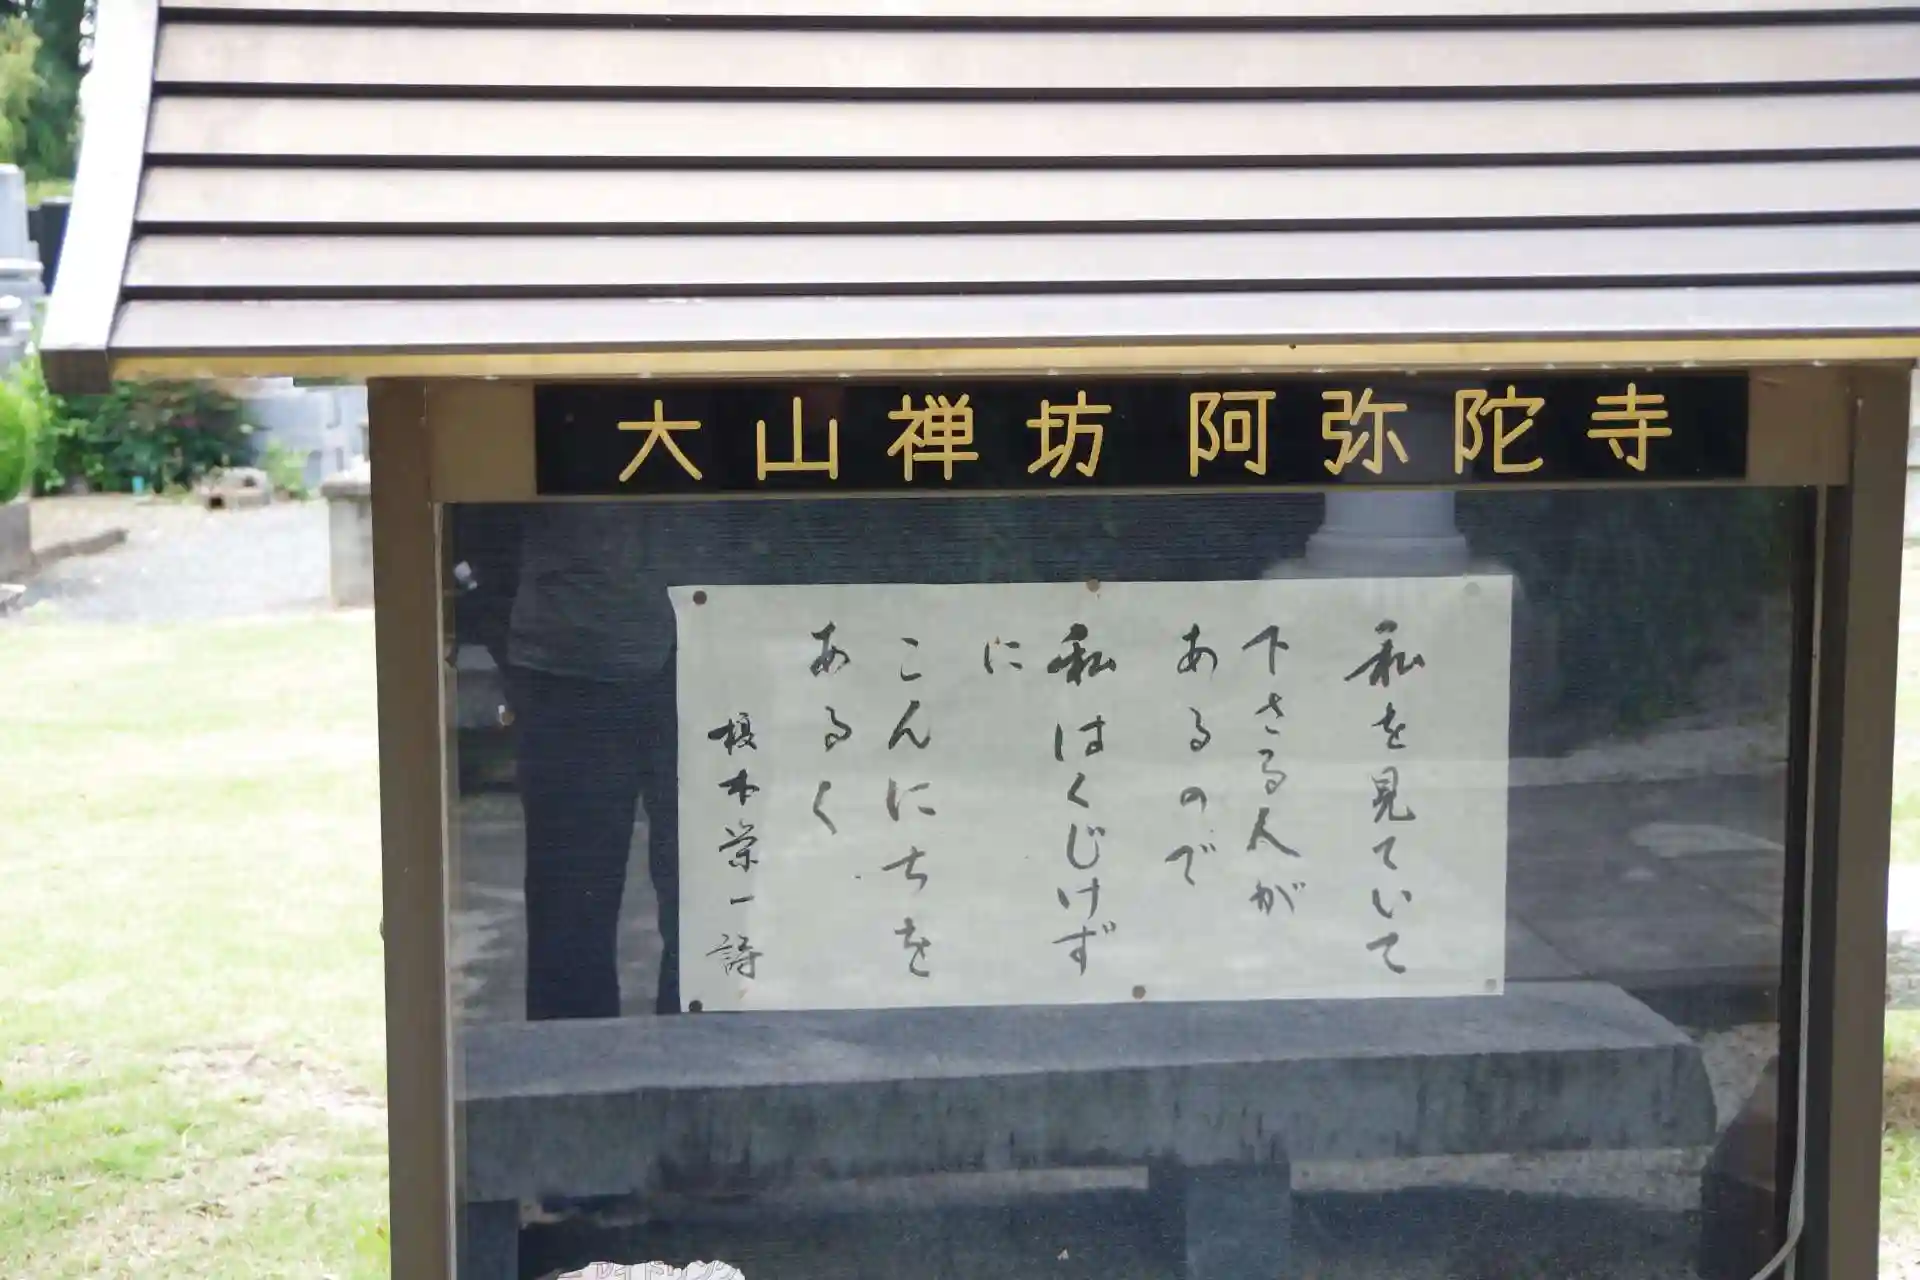 大山禅坊 阿弥陀寺
私を見ていて
下さる人が
あるので
私はくじけず
に
こんにちを
あるく
榎本栄一詩